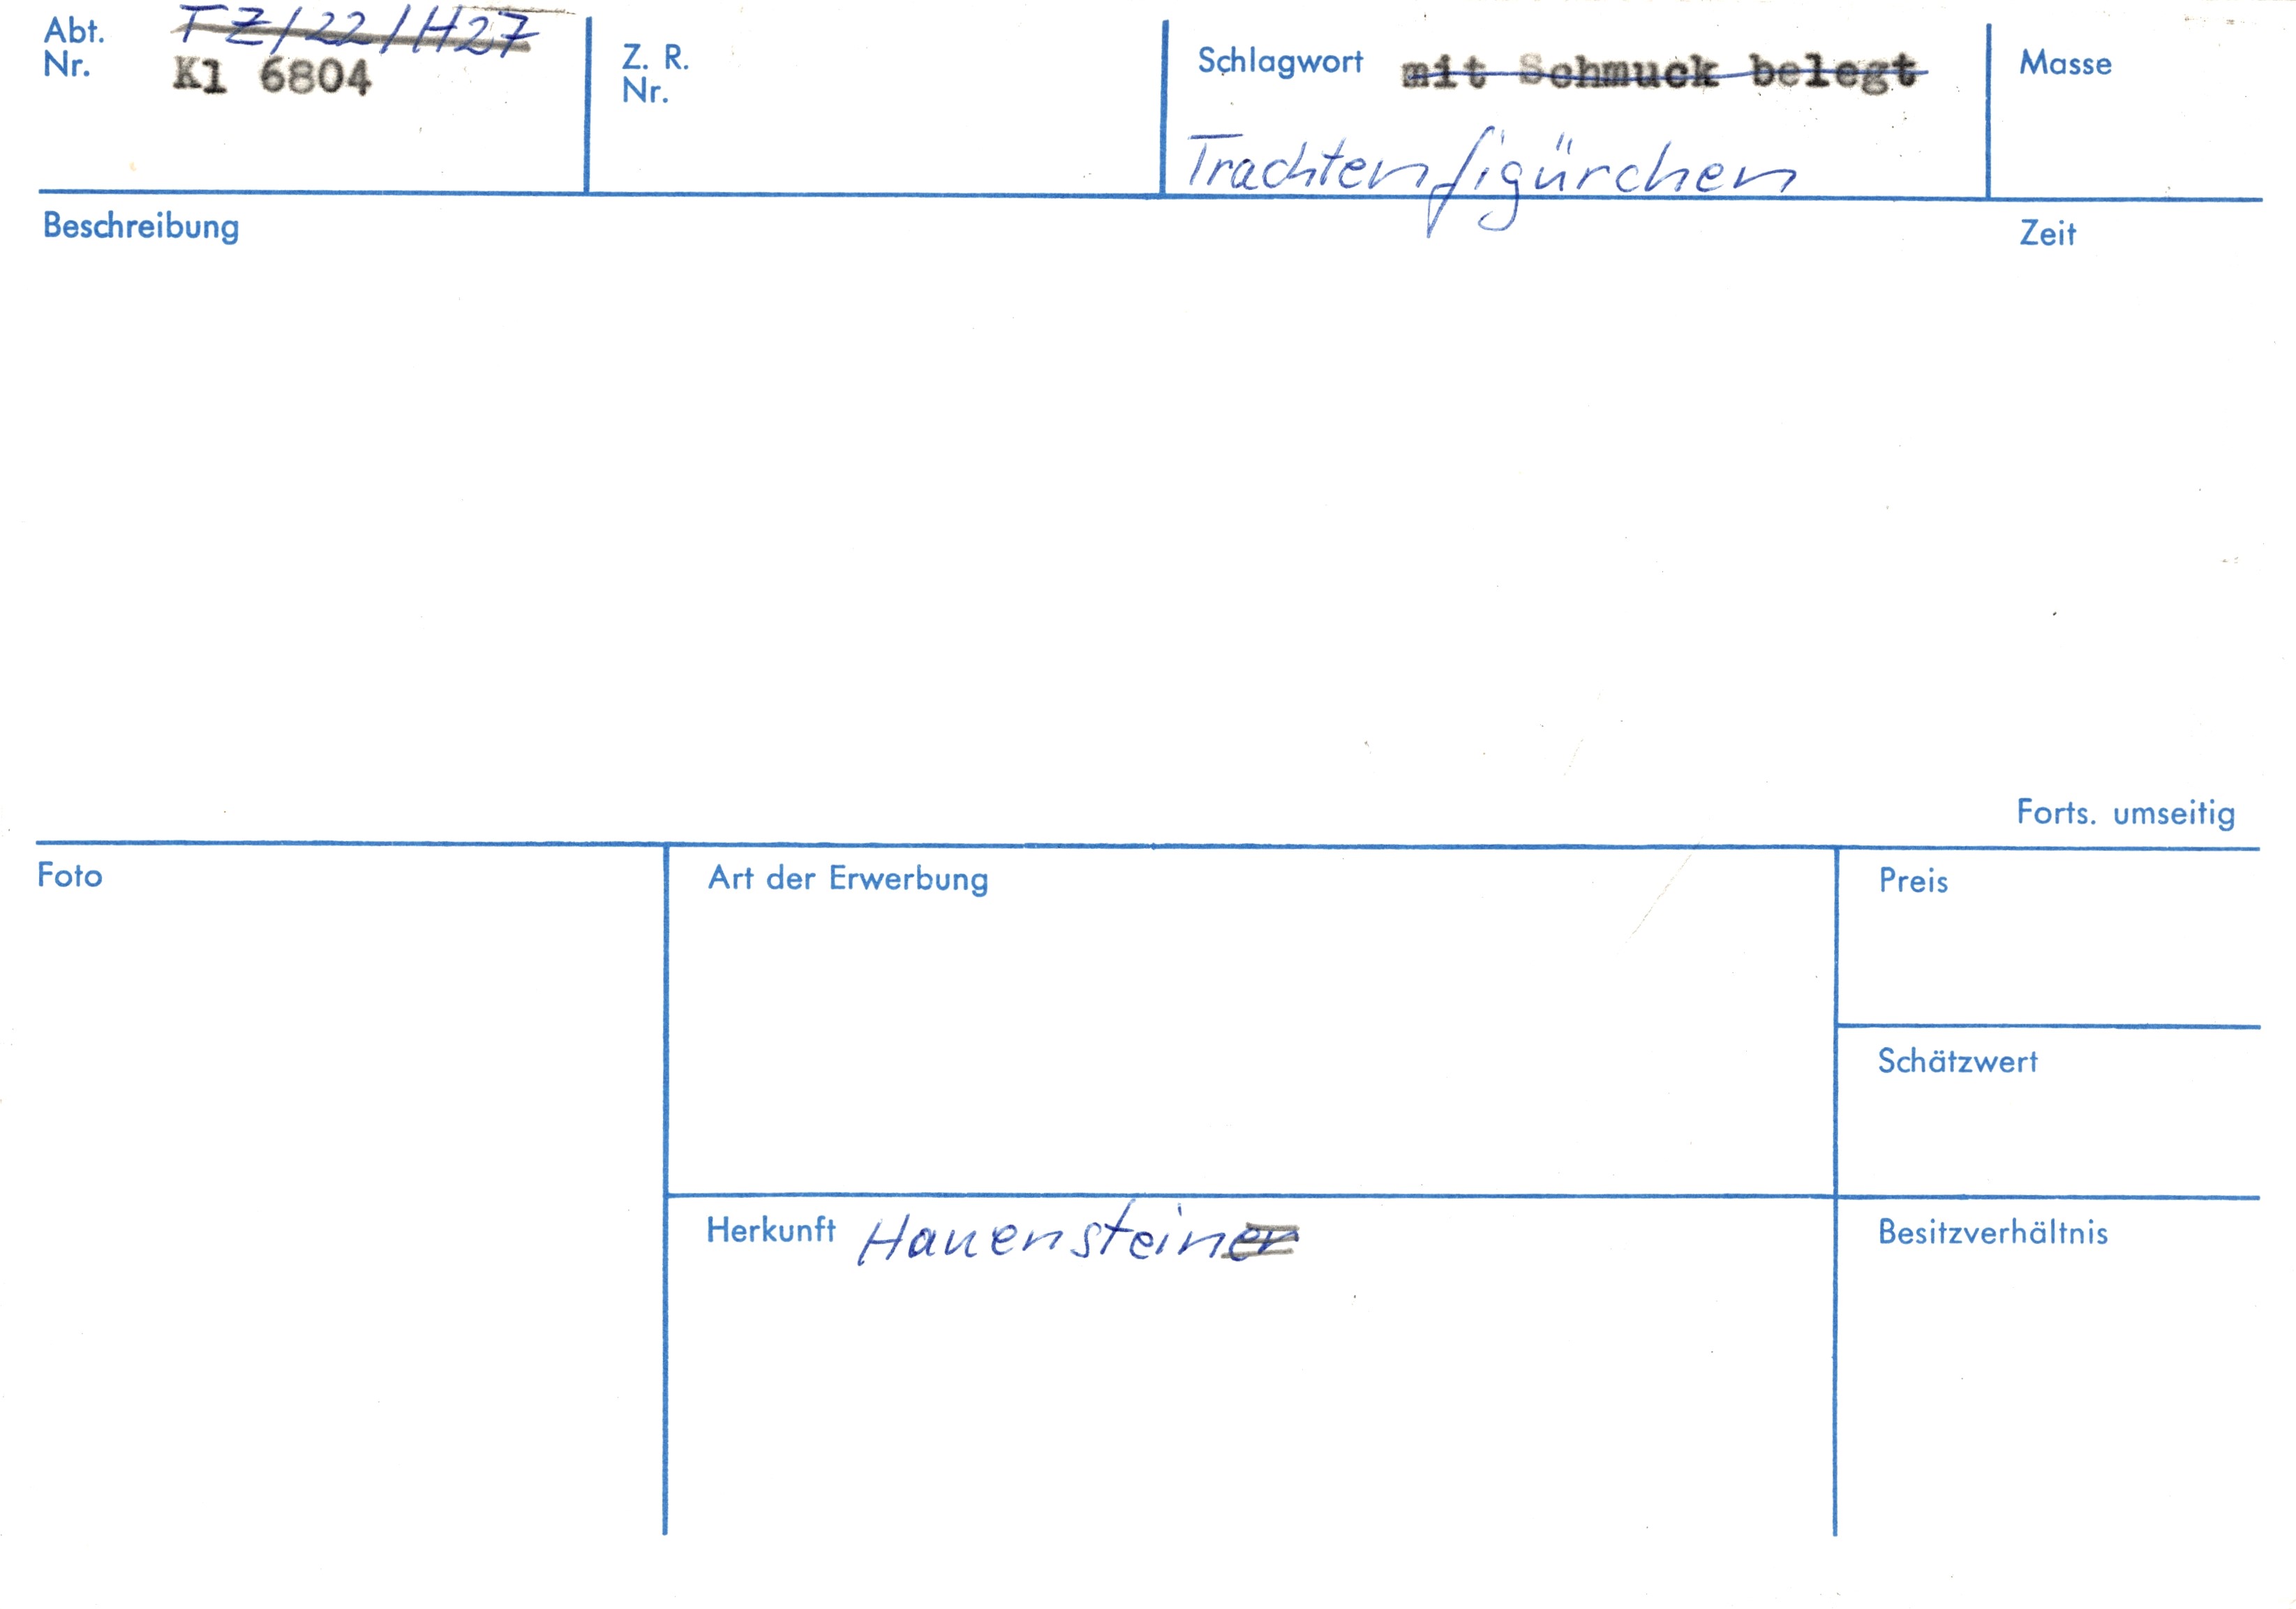 Abt. TZ/22/H27
Nr. Kl 6804
Z. R.
Nr.
Schlagwort mit Schmuck belegt
Trachtenfigürchen
Masse
Beschreibung
Zeit
Forts. umseitig
Foto
Art der Erwerbung
Preis
Schätzwert
Herkunft Hauensteiner
Besitzverhältnis